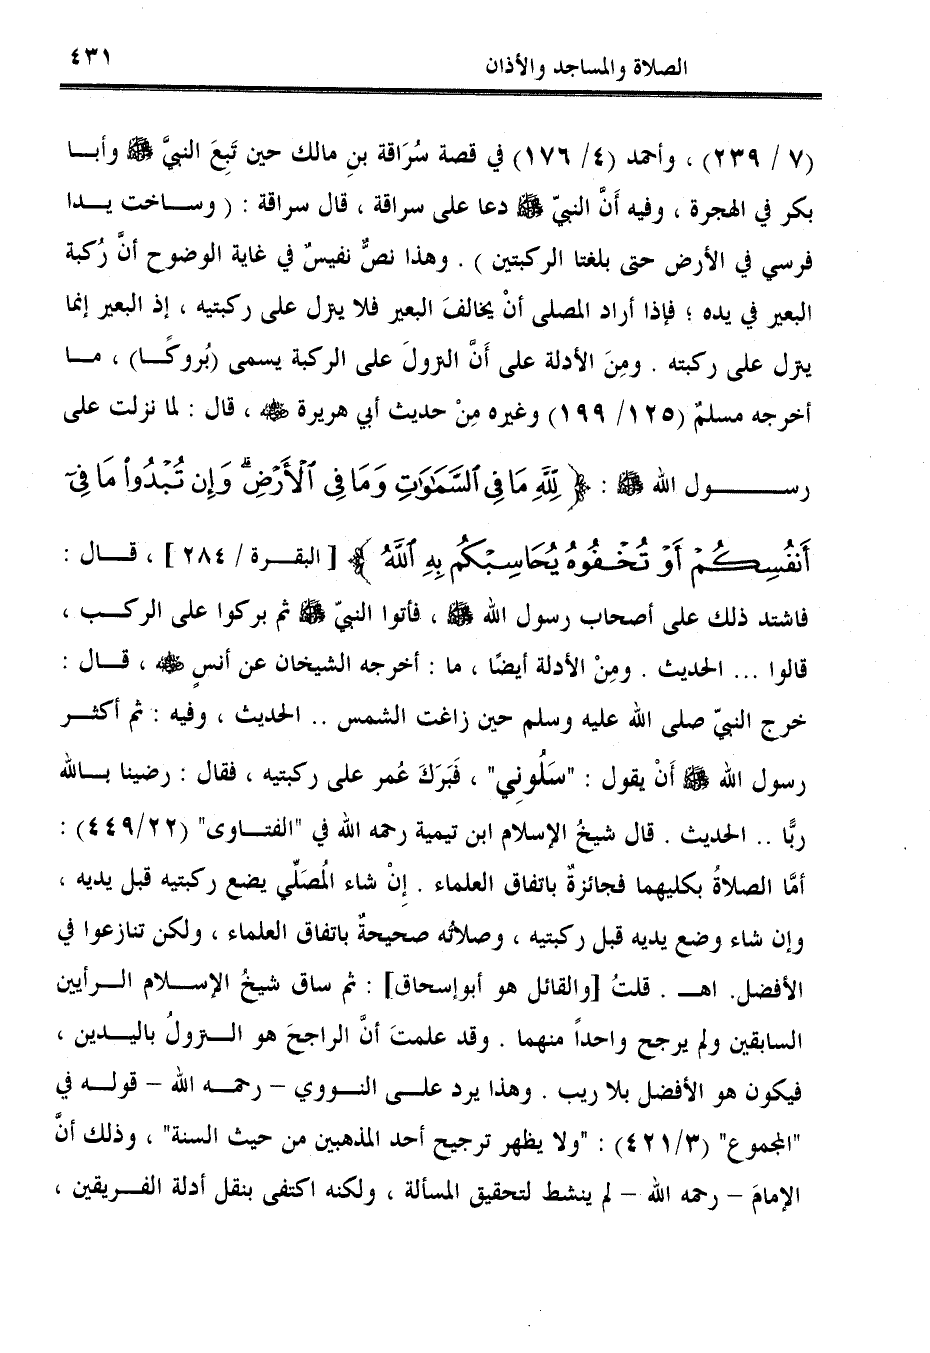 الصلاة والمساجد والأذان
٤٣١
(٧ / ٢٣٩) ، وأحمد (٤/ ١٧٦) في قصة سُرَاقة بنِ مالك حين تَبِعَ النبيَّ ﷺ وأبا
بكر في الهجرة ، وفيه أَنَّ النبيّ ﷺ دعا على سراقة ، قال سراقة : ( وساخت يدا
فرسي في الأرض حتى بلغتا الركبتين ) . وهذا نصٌّ نفيسٌ في غاية الوضوح أنَّ رُكبة
البعير في يده ؛ فإذا أراد المصلى أنْ يخالفَ البعير فلا ينزل على ركبتيه ، إذ البعير إنما
ينزل على ركبته . ومِنَ الأدلة على أَنَّ النزولَ على الركبة يسمى (بُروكًا) ، ما
أخرجه مسلمٌ (١٢٥/ ١٩٩) وغيره مِنْ حديث أبي هريرة ﷺ ، قال : لما نزلت على
رسول الله ﷺ : ﴿ لِلَّهِ مَا فِي السَّمَٰوَٰتِ وَمَا فِي ٱلْأَرْضِ ۗ وَإِن تُبْدُوا۟ مَا فِىٓ
أَنفُسِكُمْ أَوْ تُخْفُوهُ يُحَاسِبْكُم بِهِ ٱللَّهُ ﴾ [ البقرة / ٢٨٤ ] ، قال :
فاشتد ذلك على أصحاب رسول الله ﷺ ، فأتوا النبيّ ﷺ ثم بركوا على الركب ،
قالوا ... الحديث . ومِنْ الأدلة أيضًا ، ما : أخرجه الشيخان عن أنسٍ ﷺ ، قال :
خرج النبيّ صلى الله عليه وسلم حين زاغت الشمس .. الحديث ، وفيه : ثم أكثر
رسول الله ﷺ أَنْ يقول : "سَلُوني" ، فَبَرَكَ عُمر على ركبتيه ، فقال : رضينا بالله
ربًّا .. الحديث . قال شيخُ الإسلام ابن تيمية رحمه الله في "الفتاوى" (٤٤٩/٢٢) :
أمَّا الصلاةُ بكليهما فجائزةٌ باتفاق العلماء . إنْ شاء المُصَلِّي يضع ركبتيه قبل يديه ،
وإن شاء وضع يديه قبل ركبتيه ، وصلاتُه صحيحةٌ باتفاق العلماء ، ولكن تنازعوا في
الأفضل. اهـ . قلتُ [والقائل هو أبوإسحاق] : ثم ساق شيخُ الإسلام الرأيين
السابقين ولم يرجح واحداً منهما . وقد علمتَ أنَّ الراجحَ هو النزولُ باليدين ،
فيكون هو الأفضل بلا ريب . وهذا يرد على النووي – رحمه الله – قوله في
"المجموع" (٤٢١/٣) : "ولا يظهر ترجيح أحد المذهبين من حيث السنة" ، وذلك أنَّ
الإمامَ – رحمه الله – لم ينشط لتحقيق المسألة ، ولكنه اكتفى بنقل أدلة الفريقين ،